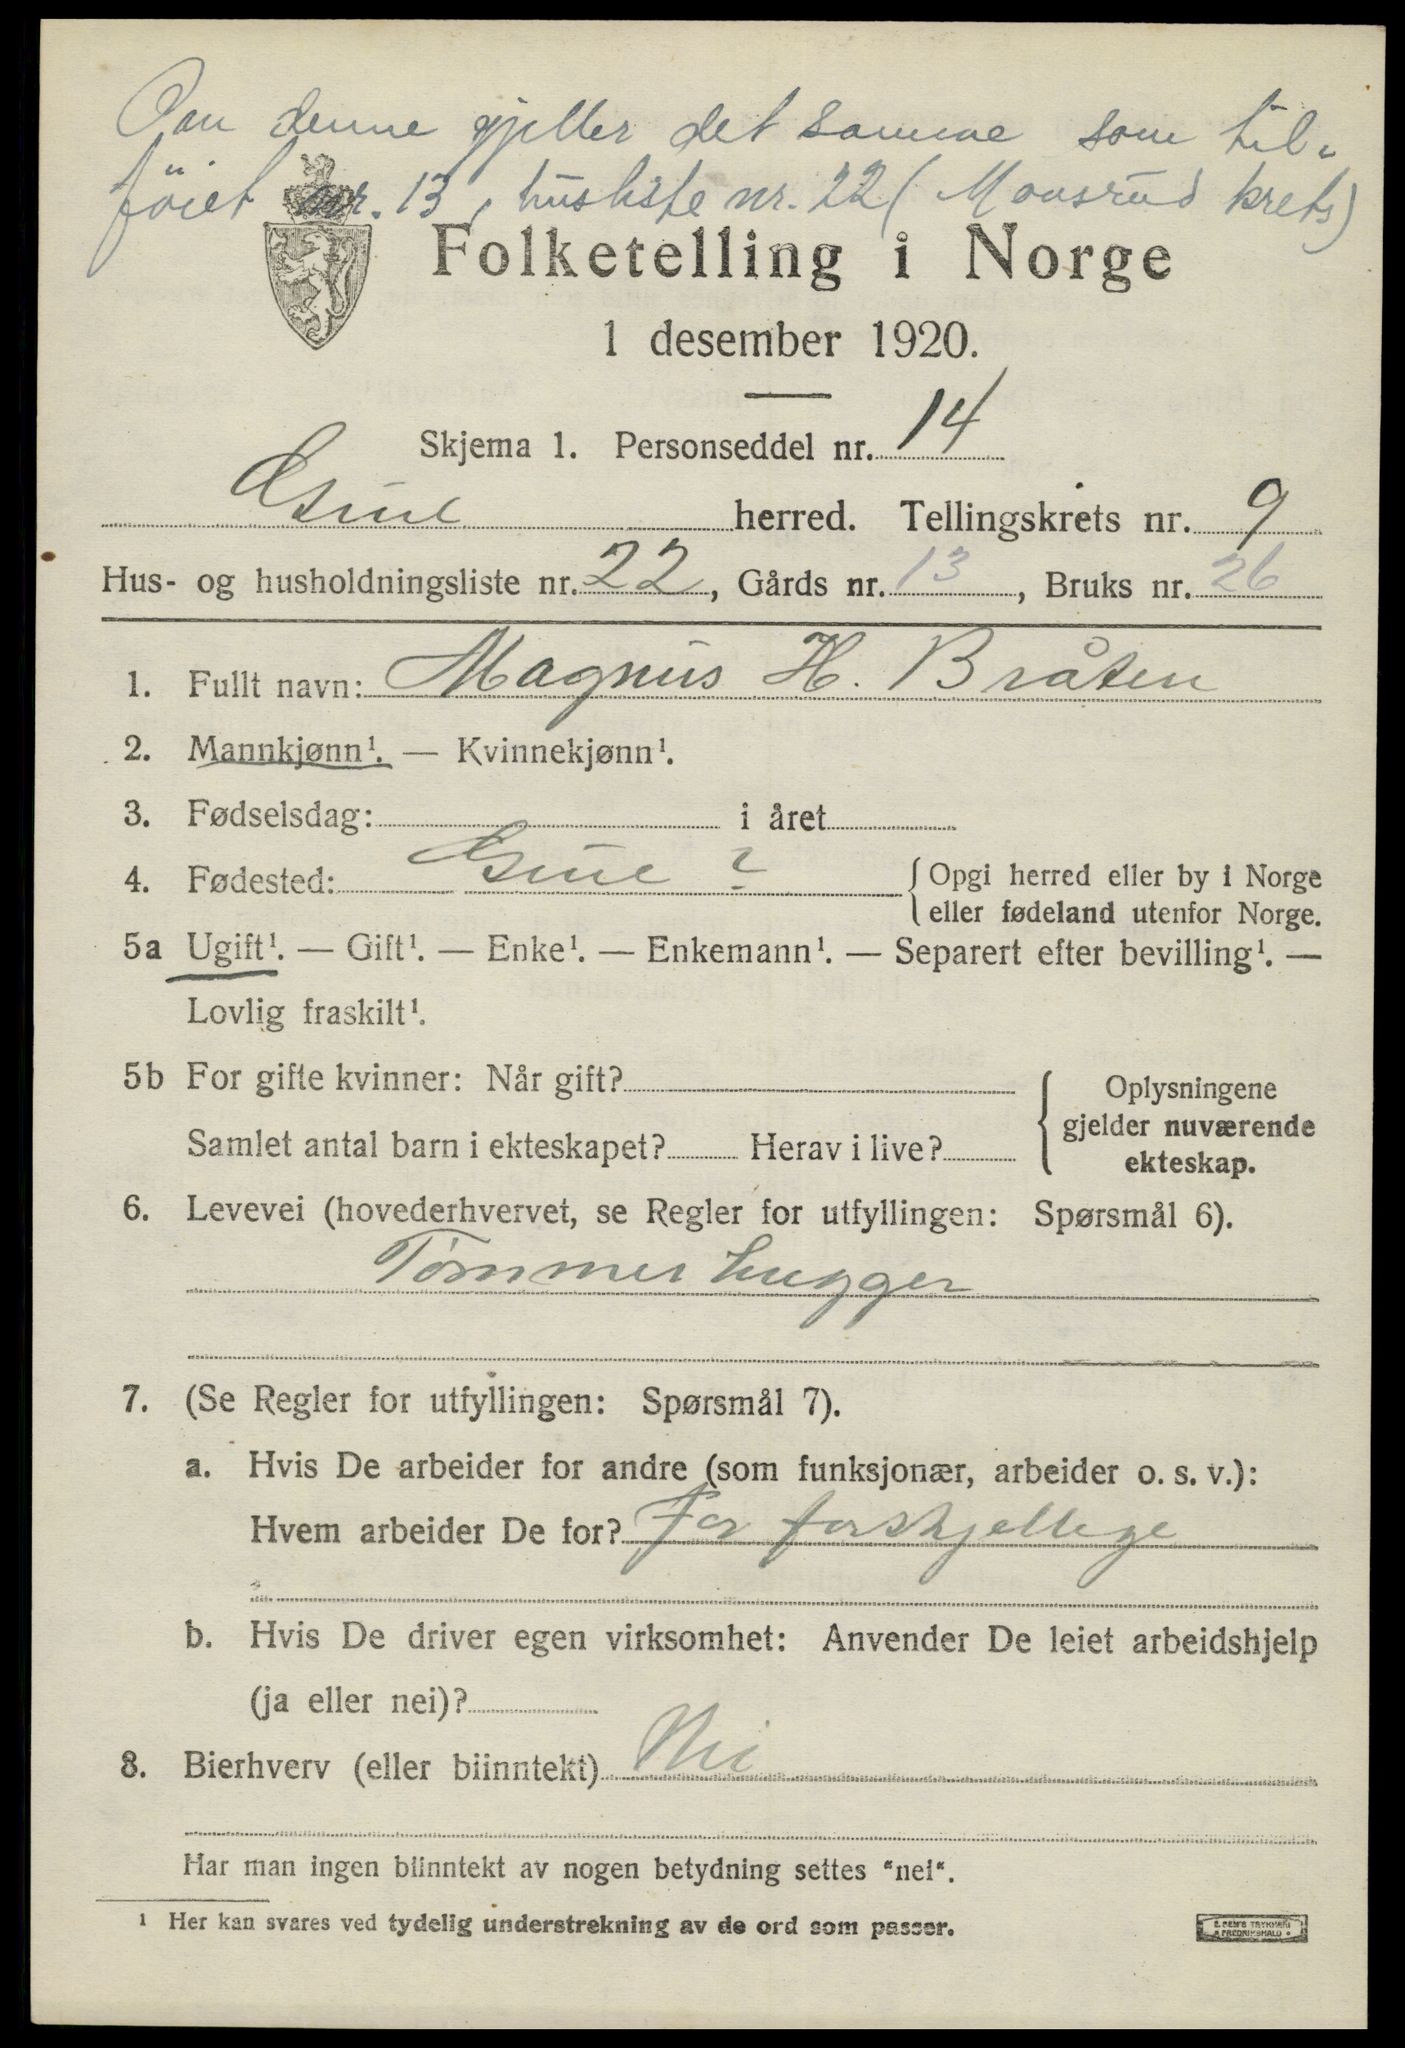 Om denne gjeller det samme som til-
føiet nr. 13, husliste nr. 22 (Monsrud krets)
Folketelling i Norge
1 desember 1920.
Skjema 1. Personseddel nr. 14
herred. Tellingskrets nr. 9
Hus- og husholdningsliste nr. 22, Gårds nr. 13, Bruks nr. 26
1. Fullt navn: Magnus H. Bråten
2. Mannkjønn¹. — Kvinnekjønn¹.
3. Fødselsdag: i året
4. Fødested: ? { Opgi herred eller by i Norge
eller fødeland utenfor Norge.
5a Ugift¹. — Gift¹. — Enke¹. — Enkemann¹. — Separert efter bevilling¹. —
Lovlig fraskilt¹.
5b For gifte kvinner: Når gift?
Samlet antal barn i ekteskapet? Herav i live?
{ Oplysningene
gjelder nuværende
ekteskap.
6. Levevei (hovederhvervet, se Regler for utfyllingen: Spørsmål 6).
Tømmerhugger
7. (Se Regler for utfyllingen: Spørsmål 7).
a. Hvis De arbeider for andre (som funksjonær, arbeider o. s. v.):
Hvem arbeider De for? For forskjellige
b. Hvis De driver egen virksomhet: Anvender De leiet arbeidshjelp
(ja eller nei)?
8. Bierhverv (eller biinntekt) Nei
Har man ingen biinntekt av nogen betydning settes "nei".
¹ Her kan svares ved tydelig understrekning av de ord som passer.